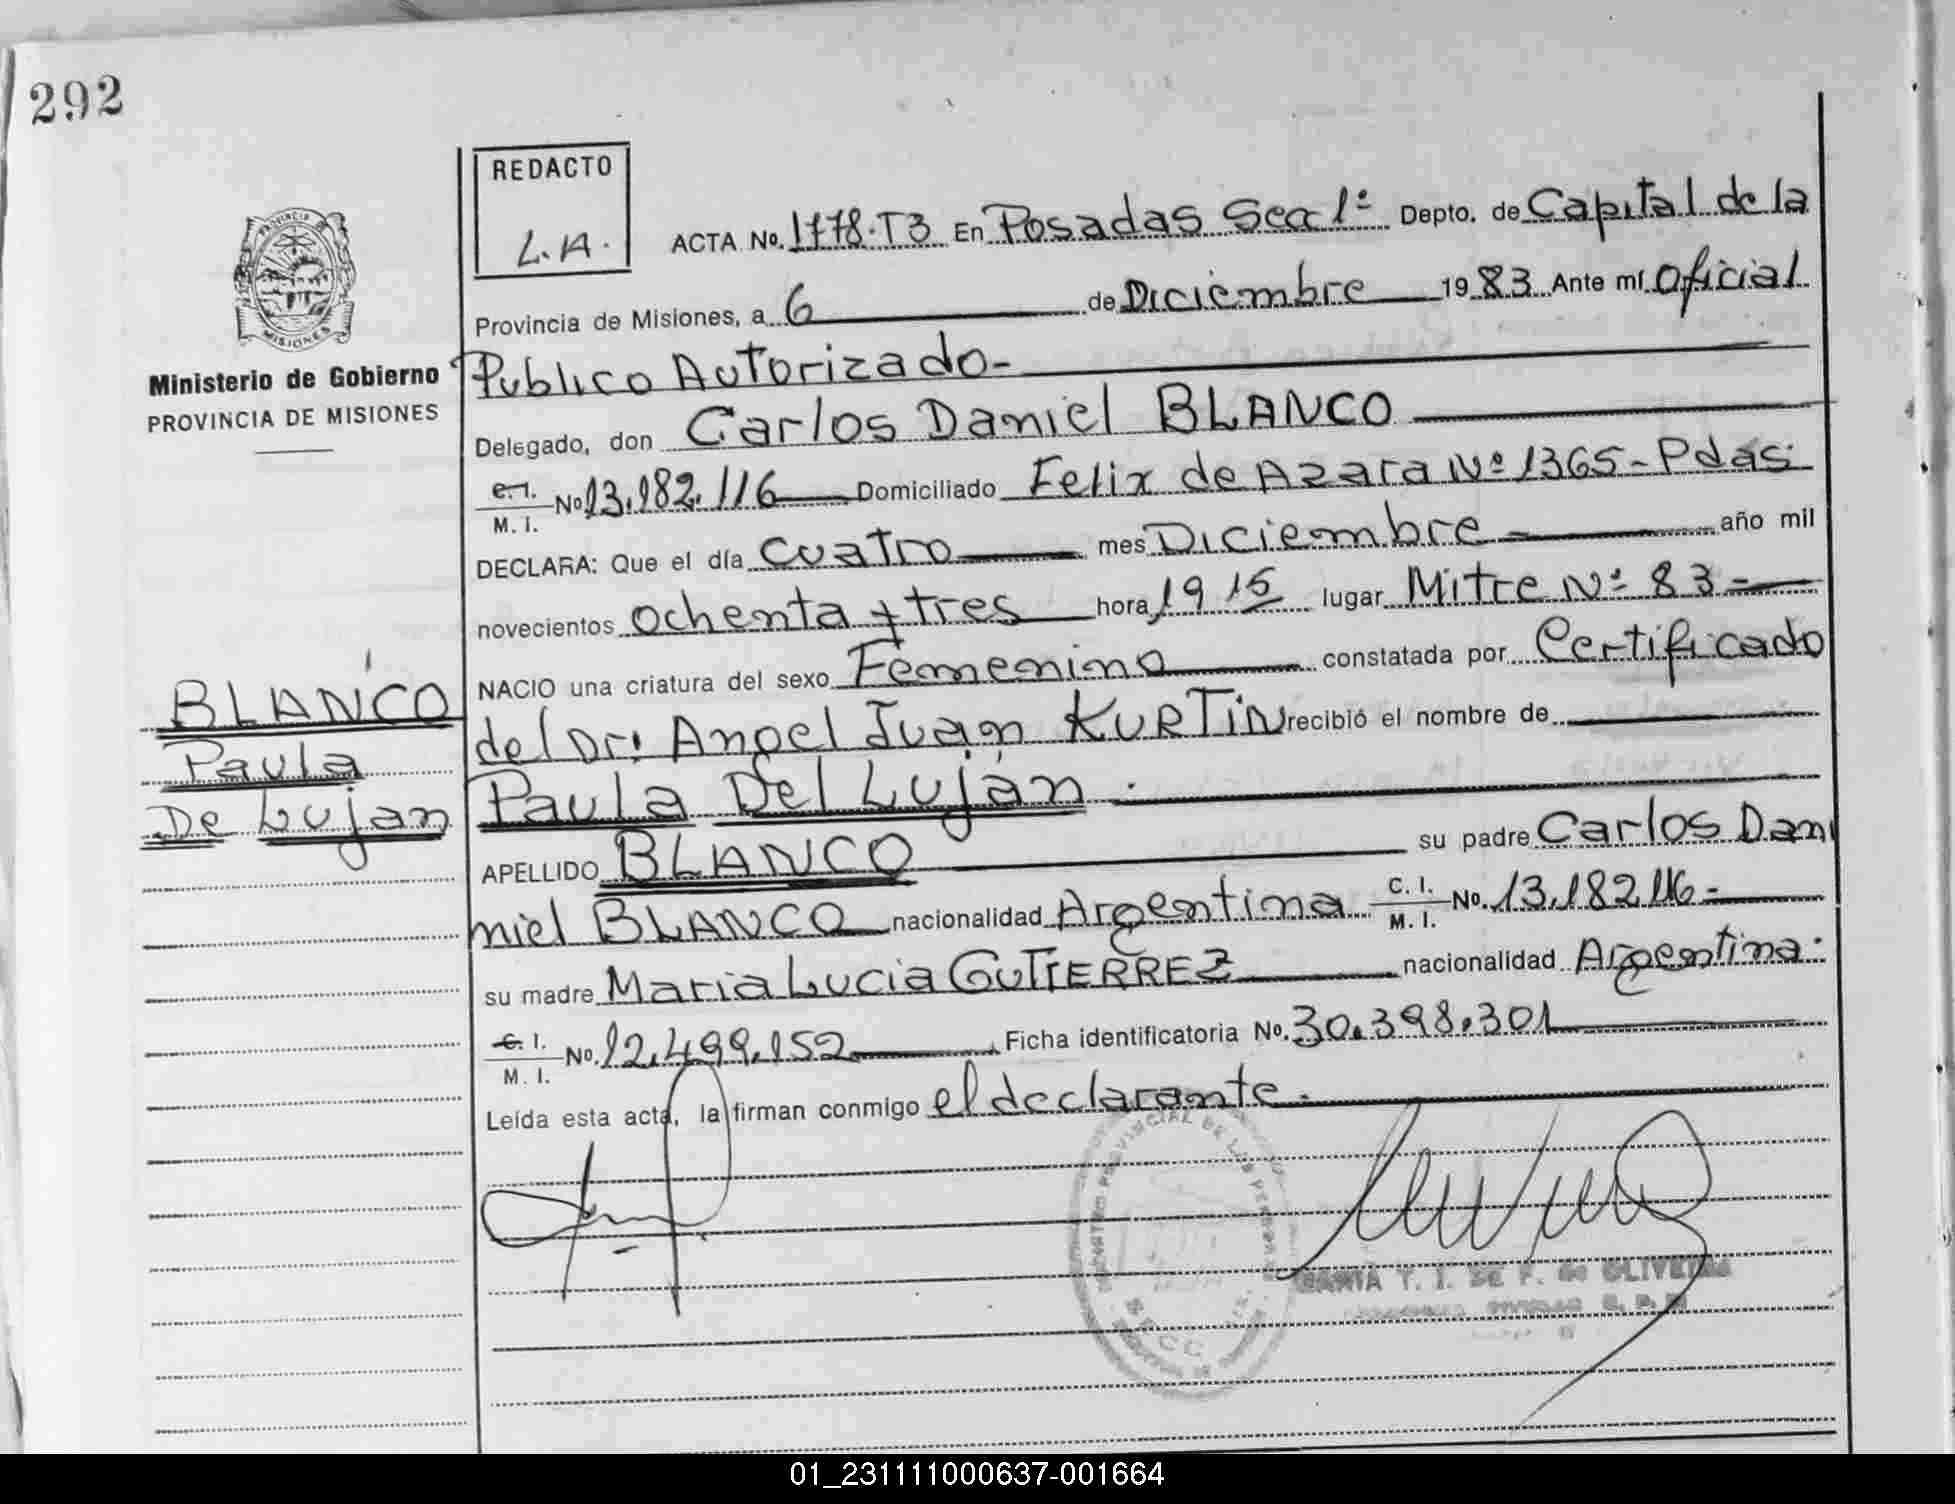 292
REDACTO
L.A.
ACTA No. 1778.T3 En Posadas Secc 1ª Depto. de Capital de la
Provincia de Misiones, a 6 de Diciembre 1983 Ante mí Oficial
Publico Autorizado-
PROVINCIA DE
MISIONES
Ministerio de Gobierno
PROVINCIA DE MISIONES
Delegado, don Carlos Daniel BLANCO
C.I. M.I. No 13.182.116 Domiciliado Felix de Azara Nº 1365 - Pdas
DECLARA: Que el día cuatro mes Diciembre - año mil
novecientos ochenta y tres hora, 19 15 lugar Mitre Nº 83 -
NACIO una criatura del sexo Femenino constatada por Certificado
del Dr. Angel Juan KURTIN recibió el nombre de
Paula Del Luján -
BLANCO
Paula
De Lujan
APELLIDO BLANCO su padre Carlos Dani
niel BLANCO nacionalidad Argentina C.I. M.I. No. 13.182.116 -
su madre Maria Lucia GUTIERREZ nacionalidad Argentina.
C.I. M.I. No. 12.499.152 Ficha identificatoria No. 30.398.301
Leída esta acta, la firman conmigo el declarante.
PROVINCIAL DE LAS PERSONAS
de OLIVEIRA
01_231111000637-001664